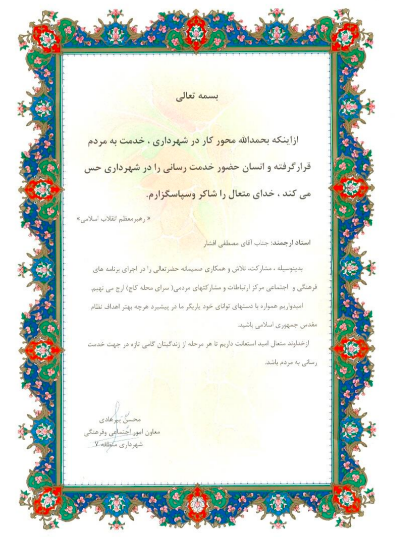 بسمه تعالی
ازاینکه بحمدالله محور کار در شهرداری ، خدمت به مردم
قرارگرفته و انسان حضور خدمت رسانی را در شهرداری حس
می کند ، خدای متعال را شاکر وسپاسگزارم.
« رهبرمعظم انقلاب اسلامی»
استاد ارجمند: جناب آقای مصطفی افشار
بدینوسیله ، مشارکت، تلاش و همکاری صمیمانه حضرتعالی را در اجرای برنامه های
فرهنگی و اجتماعی مرکز ارتباطات و مشارکتهای مردمی( سرای محله کاج) ارج می نهیم.
امیدواریم همواره با دستهای توانای خود یاریگر ما در پیشبرد هرچه بهتر اهداف نظام
مقدس جمهوری اسلامی باشید.
ازخداوند متعال امید استعانت داریم تا هر مرحله از زندگیتان گامی تازه در جهت خدمت
رسانی به مردم باشد.
محسن
معاون امور اجتماعی وفرهنگی
شهرداری منطقه